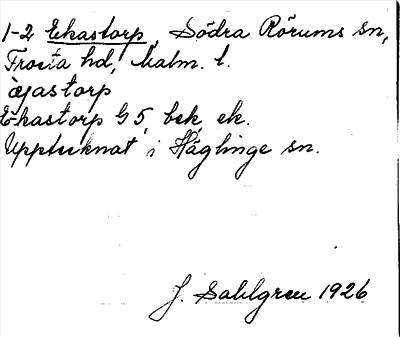 1-2 Ekastorp, Södra Rörums sn,
Frosta hd, Malm. l.
àjastorp
Ekastorp G 5, bek, ek.
Upptecknat i Häglinge sn.
J. Sahlgren 1926